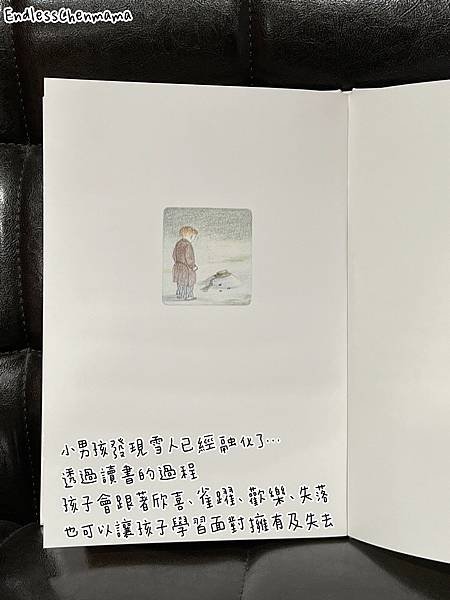 EndlessChenmama
小男孩發現雪人已經融化了…
透過讀書的過程
孩子會跟著欣喜、雀躍、歡樂、失落
也可以讓孩子學習面對擁有及失去